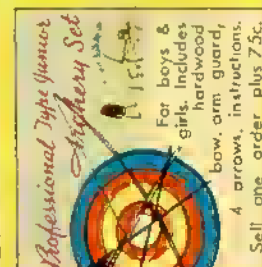 Professional Type Junior
Archery Set
For boys &
girls. Includes
hardwood
bow, arm guard,
4 arrows, instructions.
Sell one order plus 75c.